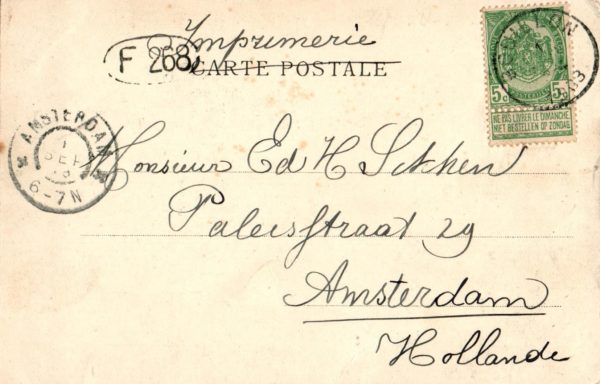 Imprimerie
F 268
CARTE POSTALE
5c 5c
NE PAS LIVRER LE DIMANCHE
NIET BESTELLEN OP ZONDAG
AMSTERDAM
1
SEP
6-7N
Monsieur Ed H
Paleisstraat 29
Amsterdam
Hollande